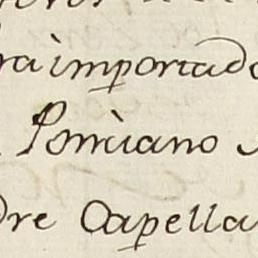 ra importado
Ponciano
dre Capella